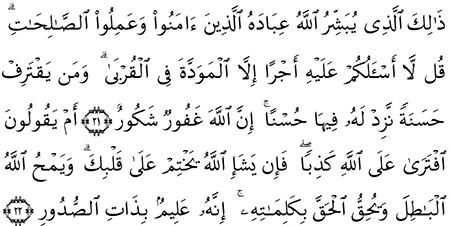 ذَٰلِكَ ٱلَّذِى يُبَشِّرُ ٱللَّهُ عِبَادَهُ ٱلَّذِينَ ءَامَنُوا۟ وَعَمِلُوا۟ ٱلصَّـٰلِحَـٰتِ ۗ
قُل لَّآ أَسْـَٔلُكُمْ عَلَيْهِ أَجْرًا إِلَّا ٱلْمَوَدَّةَ فِى ٱلْقُرْبَىٰ ۗ وَمَن يَقْتَرِفْ
حَسَنَةً نَّزِدْ لَهُۥ فِيهَا حُسْنًا ۚ إِنَّ ٱللَّهَ غَفُورٌ شَكُورٌ ﴿٢١﴾ أَمْ يَقُولُونَ
ٱفْتَرَىٰ عَلَى ٱللَّهِ كَذِبًا ۖ فَإِن يَشَإِ ٱللَّهُ يَخْتِمْ عَلَىٰ قَلْبِكَ ۗ وَيَمْحُ ٱللَّهُ
ٱلْبَـٰطِلَ وَيُحِقُّ ٱلْحَقَّ بِكَلِمَـٰتِهِۦٓ ۚ إِنَّهُۥ عَلِيمٌۢ بِذَاتِ ٱلصُّدُورِ ﴿٢٢﴾